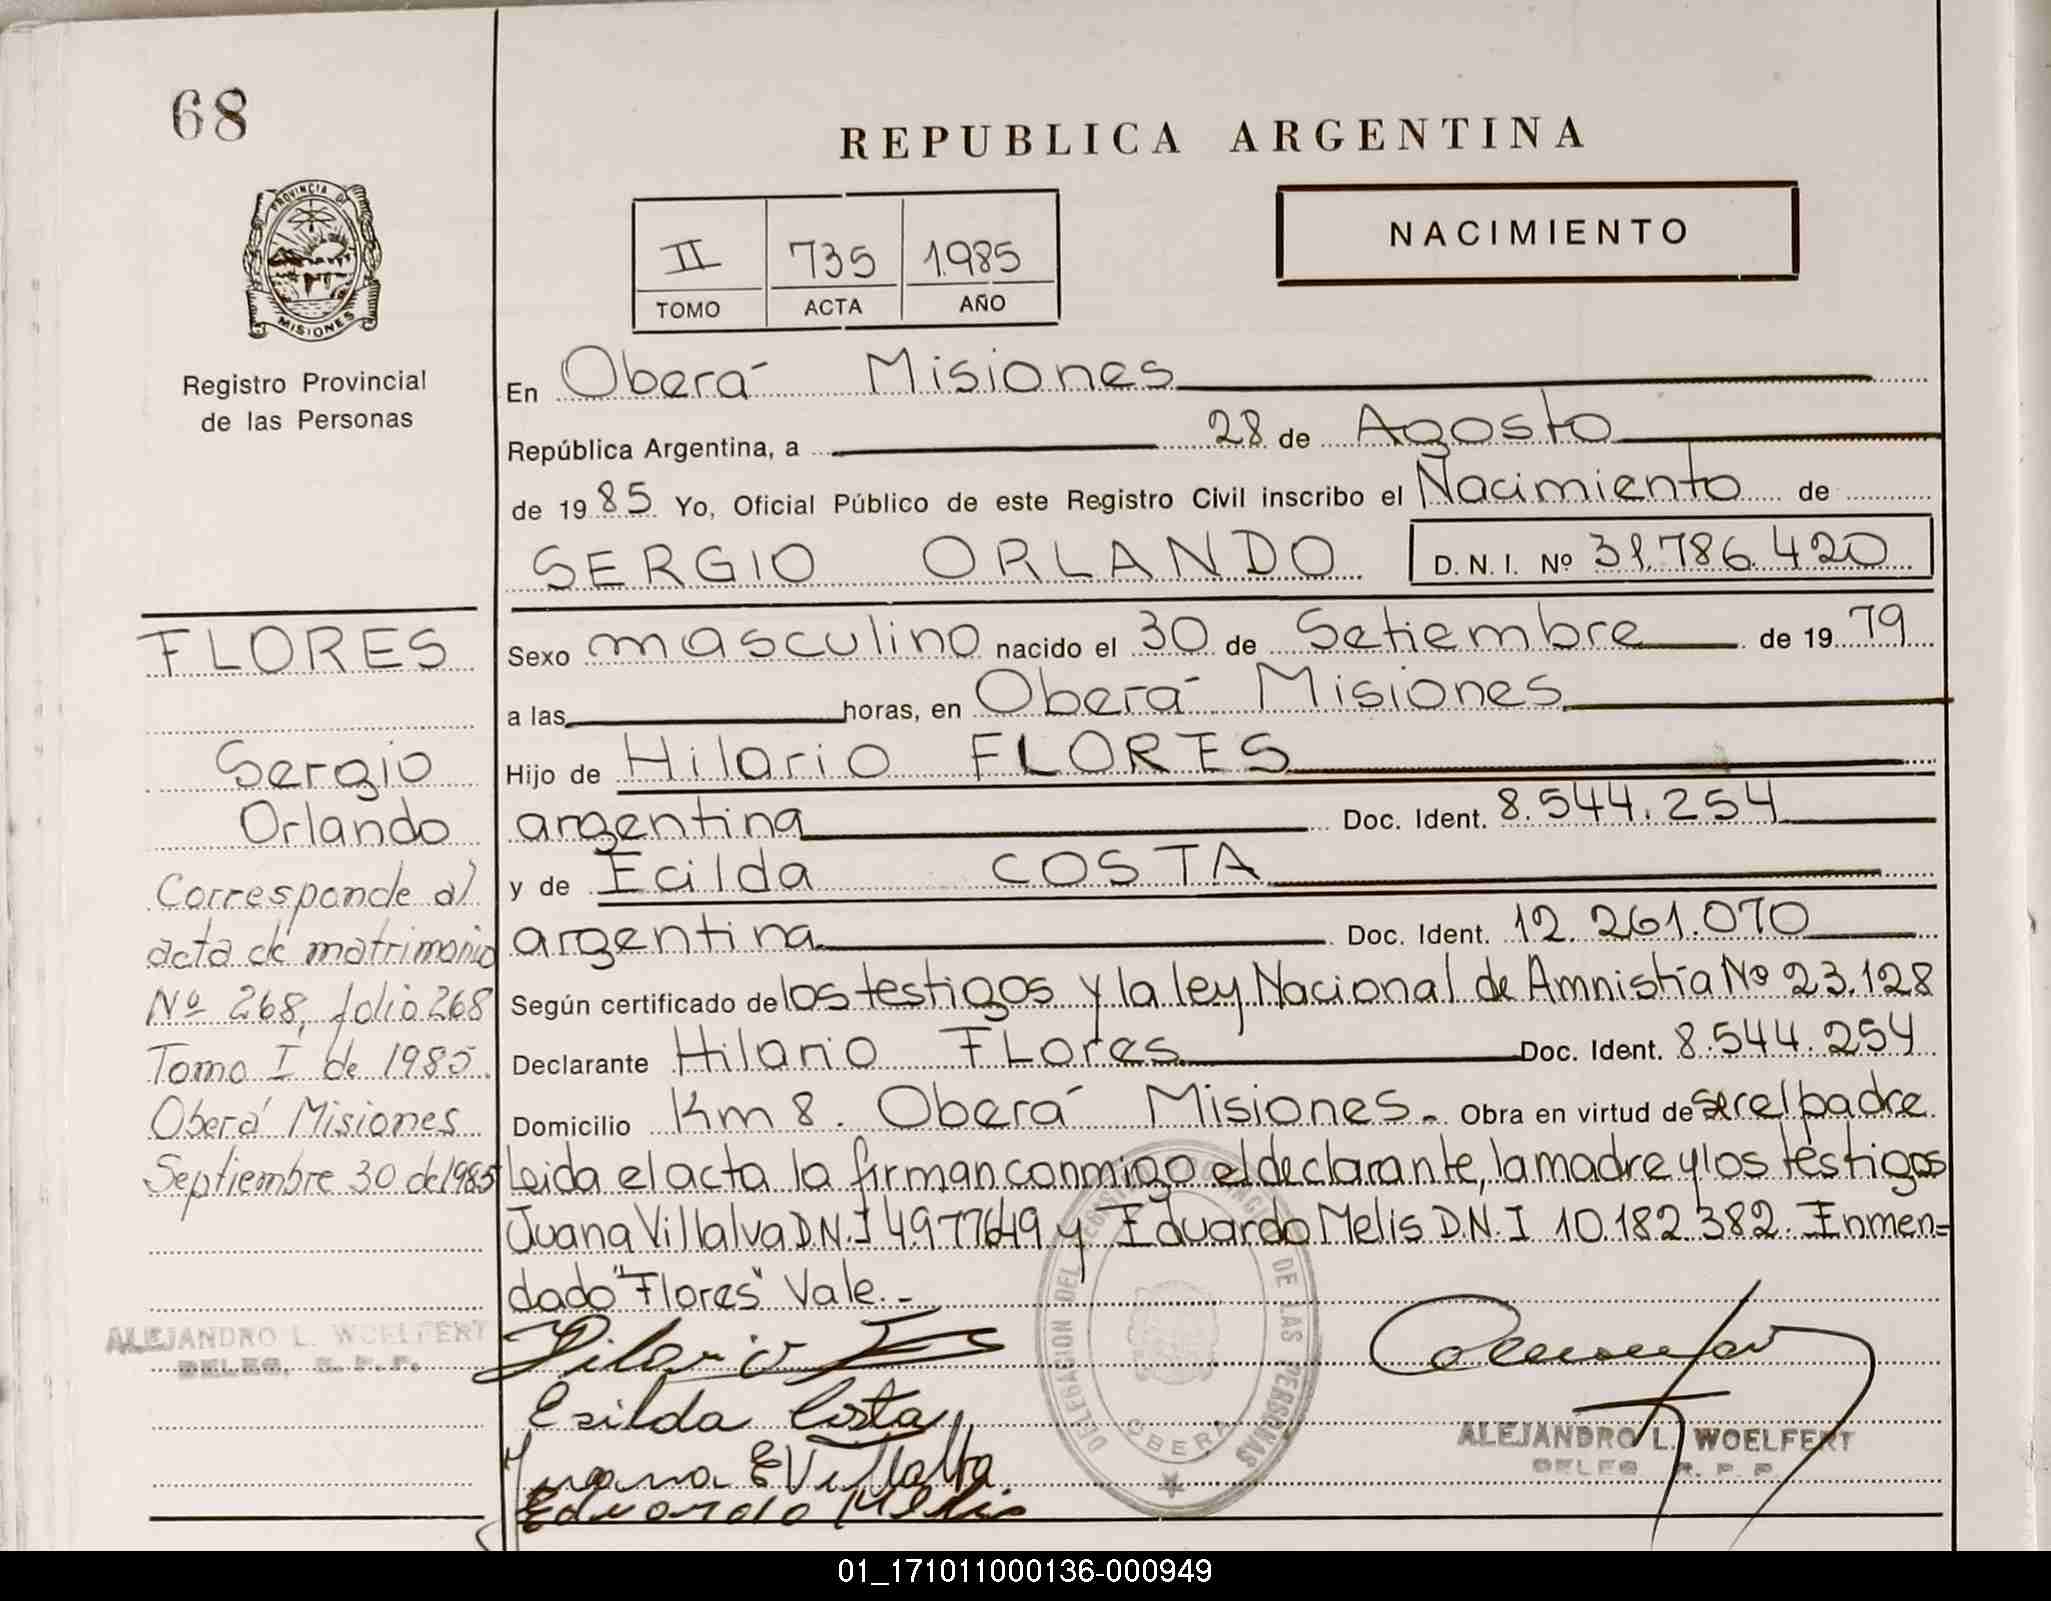 68
PROVINCIA DE
MISIONES
Registro Provincial
de las Personas
REPUBLICA ARGENTINA
II 735 1985
TOMO ACTA AÑO
NACIMIENTO
En Oberá Misiones
República Argentina, a 28 de Agosto
de 1985 Yo, Oficial Público de este Registro Civil inscribo el Nacimiento de
SERGIO ORLANDO D. N. I. Nº 31.786.420
Sexo masculino nacido el 30 de Setiembre de 1979
a las horas, en Oberá Misiones
Hijo de Hilario FLORES
argentina Doc. Ident. 8.544.254
y de Ecilda COSTA
argentina Doc. Ident. 12.261.070
Según certificado de los testigos y la ley Nacional de Amnistía Nº 23.128
Declarante Hilario FLores Doc. Ident. 8.544.254
Domicilio Km 8. Oberá Misiones.- Obra en virtud de ser el padre
Leida el acta la firman conmigo el declarante, la madre y los testigos
Juana Villalva D.N.I 4.977.649 y Eduardo Melis D.N.I 10.182.382. Enmen=
dado "Flores" Vale.-
FLORES
Sergio
Orlando
Corresponde al
acta de matrimonio
Nº 268, folio 268
Tomo I de 1985.
Oberá Misiones
Septiembre 30 de 1985
ALEJANDRO L. WOELFERT
DELEG. R. P. P.
Hilario
Esilda Costa
Juana E Villalba
Eduardo Melis
DELEGACION DEL REGISTRO PROVINCIAL DE LAS PERSONAS
OBERA
ALEJANDRO L. WOELFERT
DELEG. R. P. P.
01_171011000136-000949